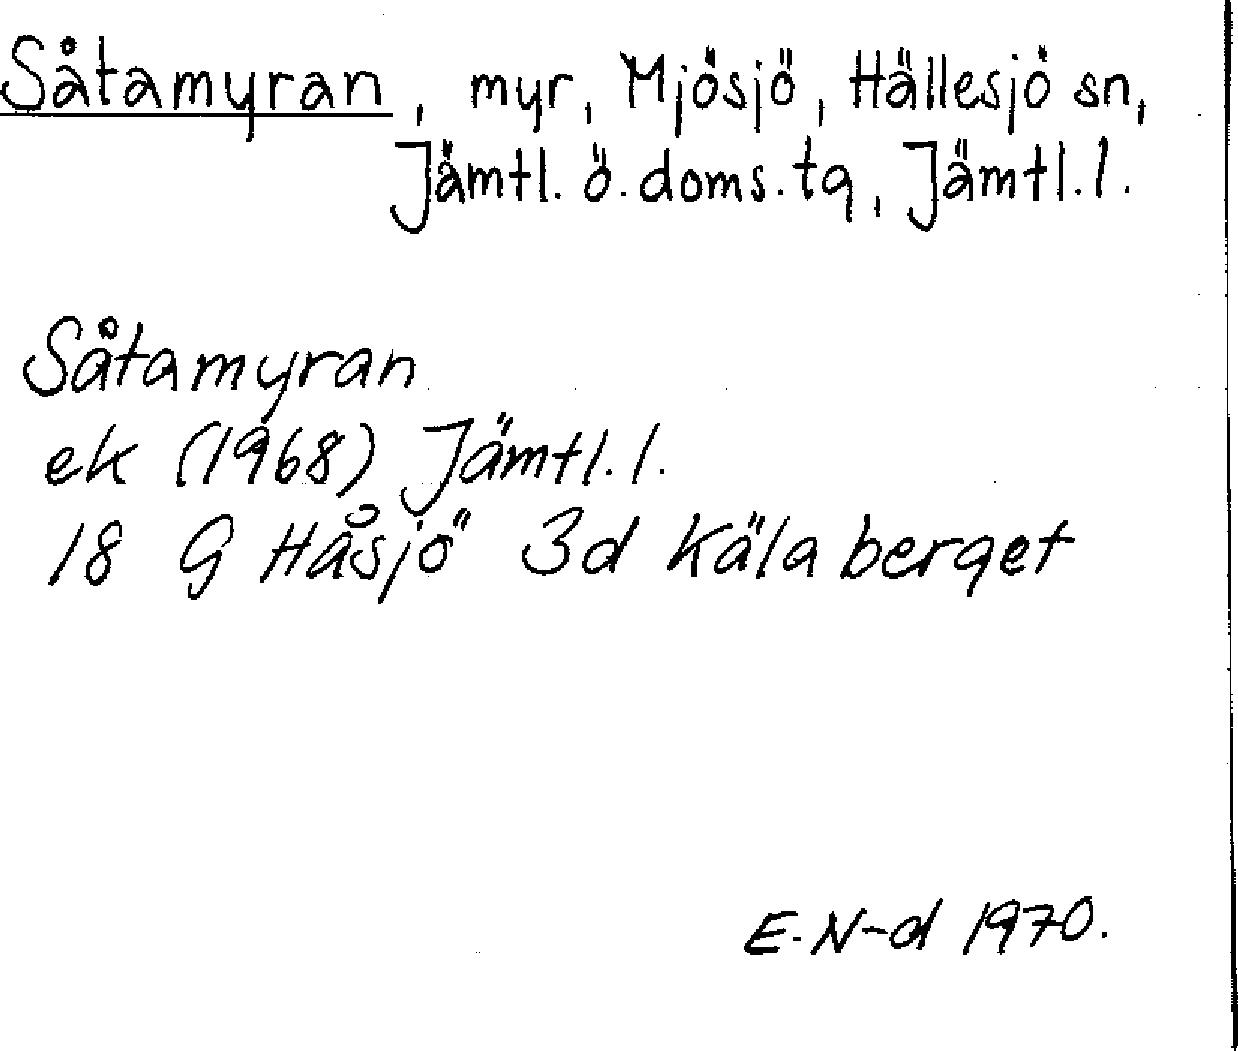 Såtamyran, myr, Mjösjö, Hällesjö sn,
Jämtl. ö. doms. tg, Jämtl. l.
Såtamyran
ek (1968) Jämtl. l.
18 G Håsjö 3d Kälaberget
E. N-d 1970.